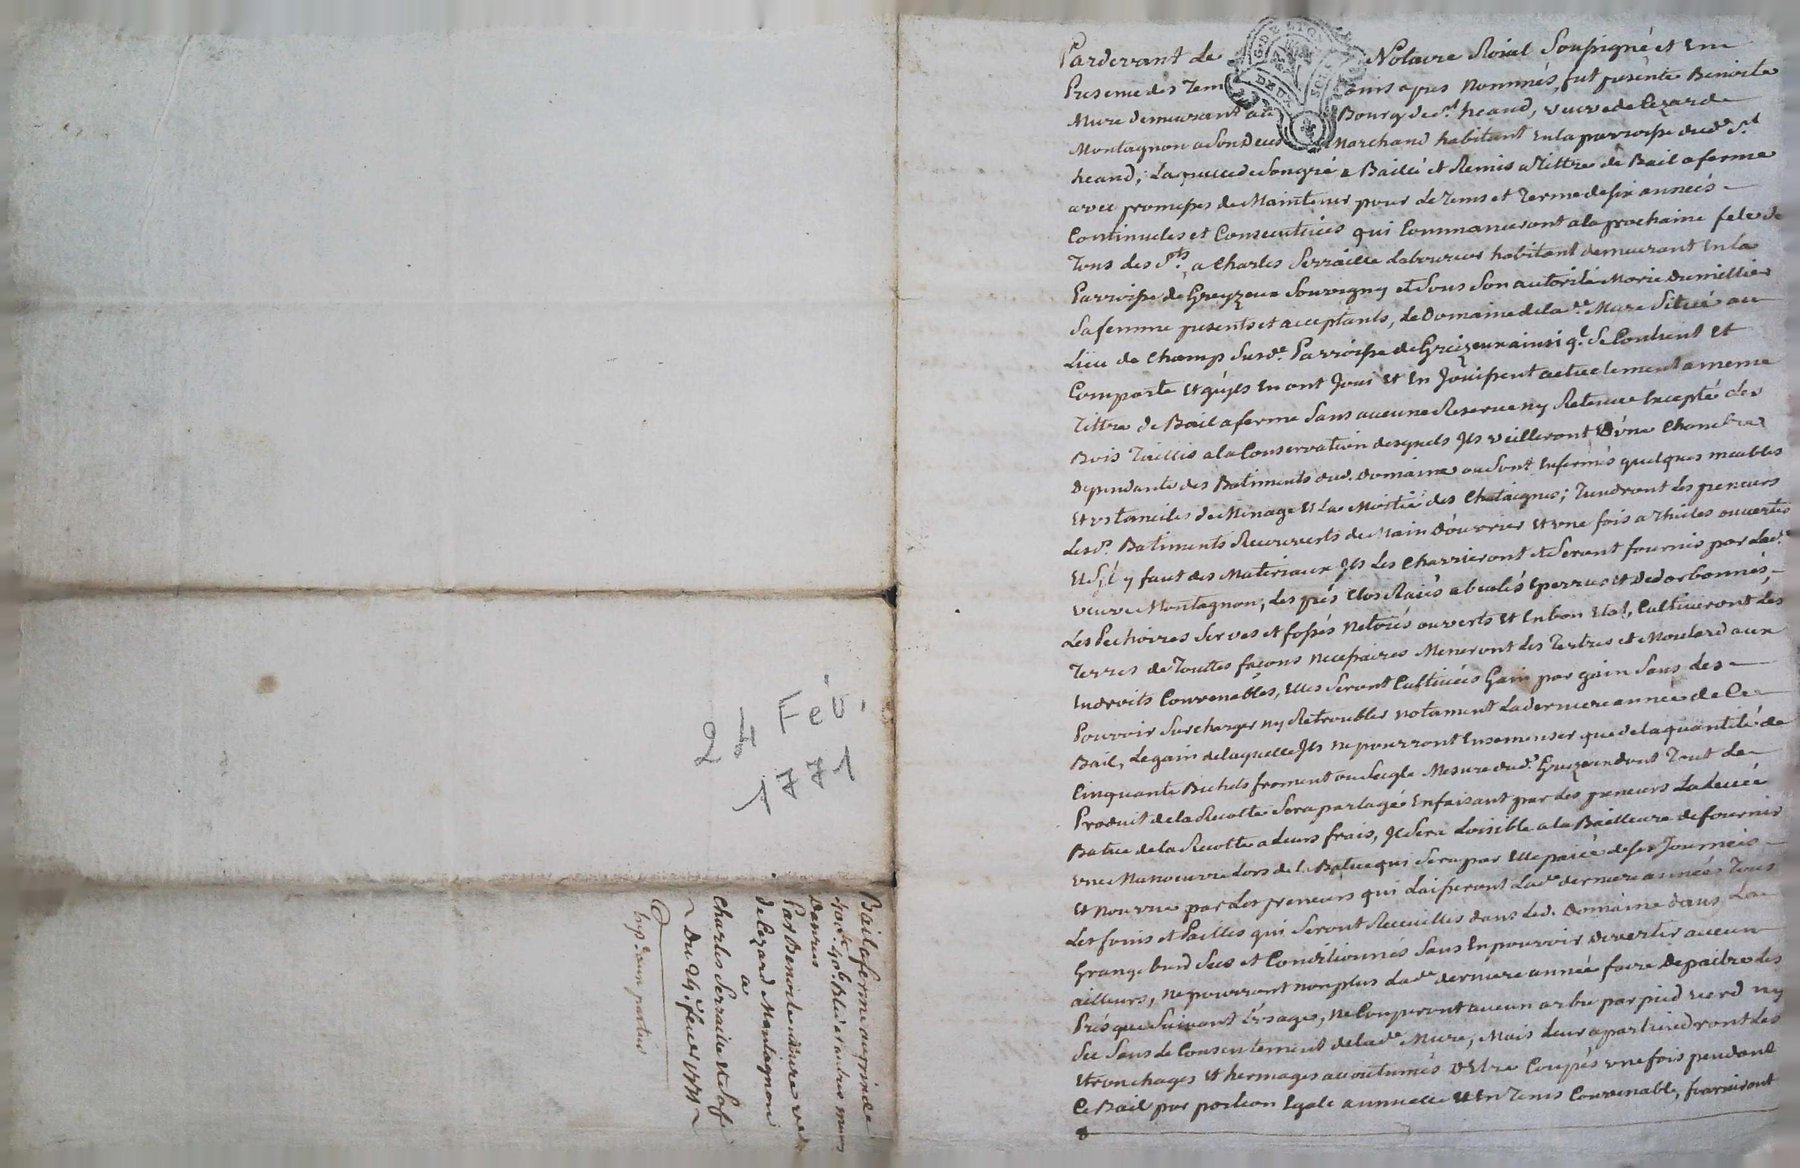 24 Fév.
1771
Bail a ferme au prix de
Denrees
Par Benoite Mure veuve
de Cezard Montagnon
a
Charles Serraille et Sa fe
Du 24e. fevr 1771
Pardevant Le Notaire Roial Soussigné et En
Presence des Temoins apres Nommés, fut presente Benoite
Mure demeurant au Bourg de St. heand, veuve de Cezard
Montagnon a Son Deces Marchand habitant En la parroisse dud. St.
heand; Laquelle de Son gré a Baillé et Remis a Tittre de Bail a ferme
avec promesses de Maintenir pour Le Tems et Terme de Six années
Continueles et Consecutives qui Commanceront a la prochaine fete de
Tous des Sts, a Charles Serraille Laboureur habitant demeurant En la
Parroisse de Greyzeux Souvigny et Sous Son autorité Marie Dumillier
Sa femme presents et acceptants, Le Domaine de lade. Mure Situé au
Lieu de Champ Susde. Parroisse de Greizeux ainsi q'l Se Contient et
Comporte Et qu'jls En ont Joui Et En Jouissent actuelement a meme
Tittre de Bail a ferme Sans aucune Reserve ny Retenue Excepté des
Bois Taillis a la Conservation desquels Jls veilleront Et D'une Chambre
Dependante des Batiments dud. Domaine ou Sont Enfermés quelques meubles
Et ustanciles de Menage Et La Moitié des Chataignes; Tiendront Les preneurs
Lesd. Batiments Recouverts de Main D'ouvrier Et une fois a Thuiles ouvertes
Et S'jl y faut des Materiaux Jls Les Charrieront Et Seront fournis par Lad.
veuve Montagnon, Les prés Clos Raiés
Les Pechoires Serves et fossés Netoiés ouverts Et En bon Etat, Cultiveront Les
Terres de Touttes façons Necessaires Meneront Les Tertres et Moulard aux
Endroits Convenables, Elles Seront Cultivées Gain par gain Sans Les
Pouvoir Surcharger ny Retroubler notament La derniere année de Ce
Bail, Le gain de laquelle Jls ne pourront Ensemenser que de la quantité de
Cinquante Bichets froment ou Seigle Mesure dud. Greyzeu dont Tout Le
Produit de la Recolte Sera partagé En faisant par Les preneurs La Levée
Batue de la Recolte a Leurs frais, Jl Sera Loisible a la Bailleure de fournir
une Manoeuvre Lors de la Batue qui Sera par Elle paiée de Ses Journées
Et nourrie par Les preneurs qui Laisseront Lade. derniere année Tous
Les foins et Pailles qui Seront Recueilles dans Led. Domaine dans La
Grange bien Secs et Conditionnés Sans En pouvoir Divertir aucun
ailleurs, Ne pourront non plus Lade. derniere année faire Depaitre Les
Prés que Suivant L'usage, Ne Couperont aucun arbre par pied verd ny
Sec Sans Le Consentement de lade. Mure, Mais Leur apartiendront Les
Etronchages Et hermages accoutumés D'Etre Coupés une fois pendant
Ce Bail par portion Egale annuelle Et En Tems Convenable, fourniront